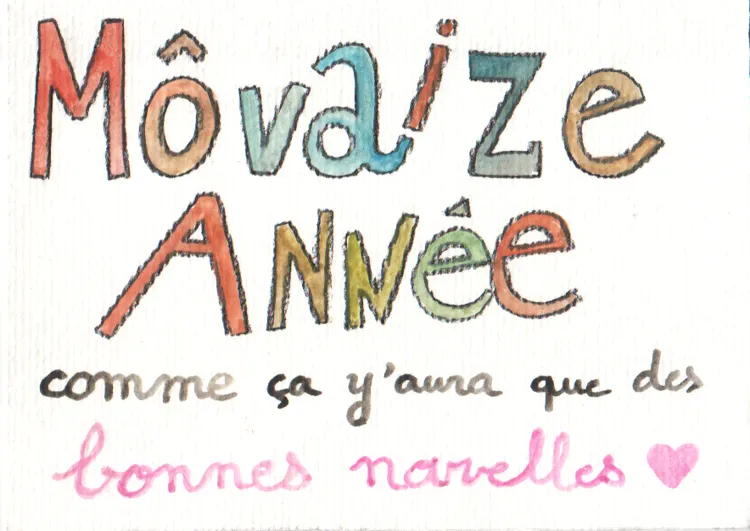 Môvaize
Année
comme ça y'aura que des
bonnes novelles